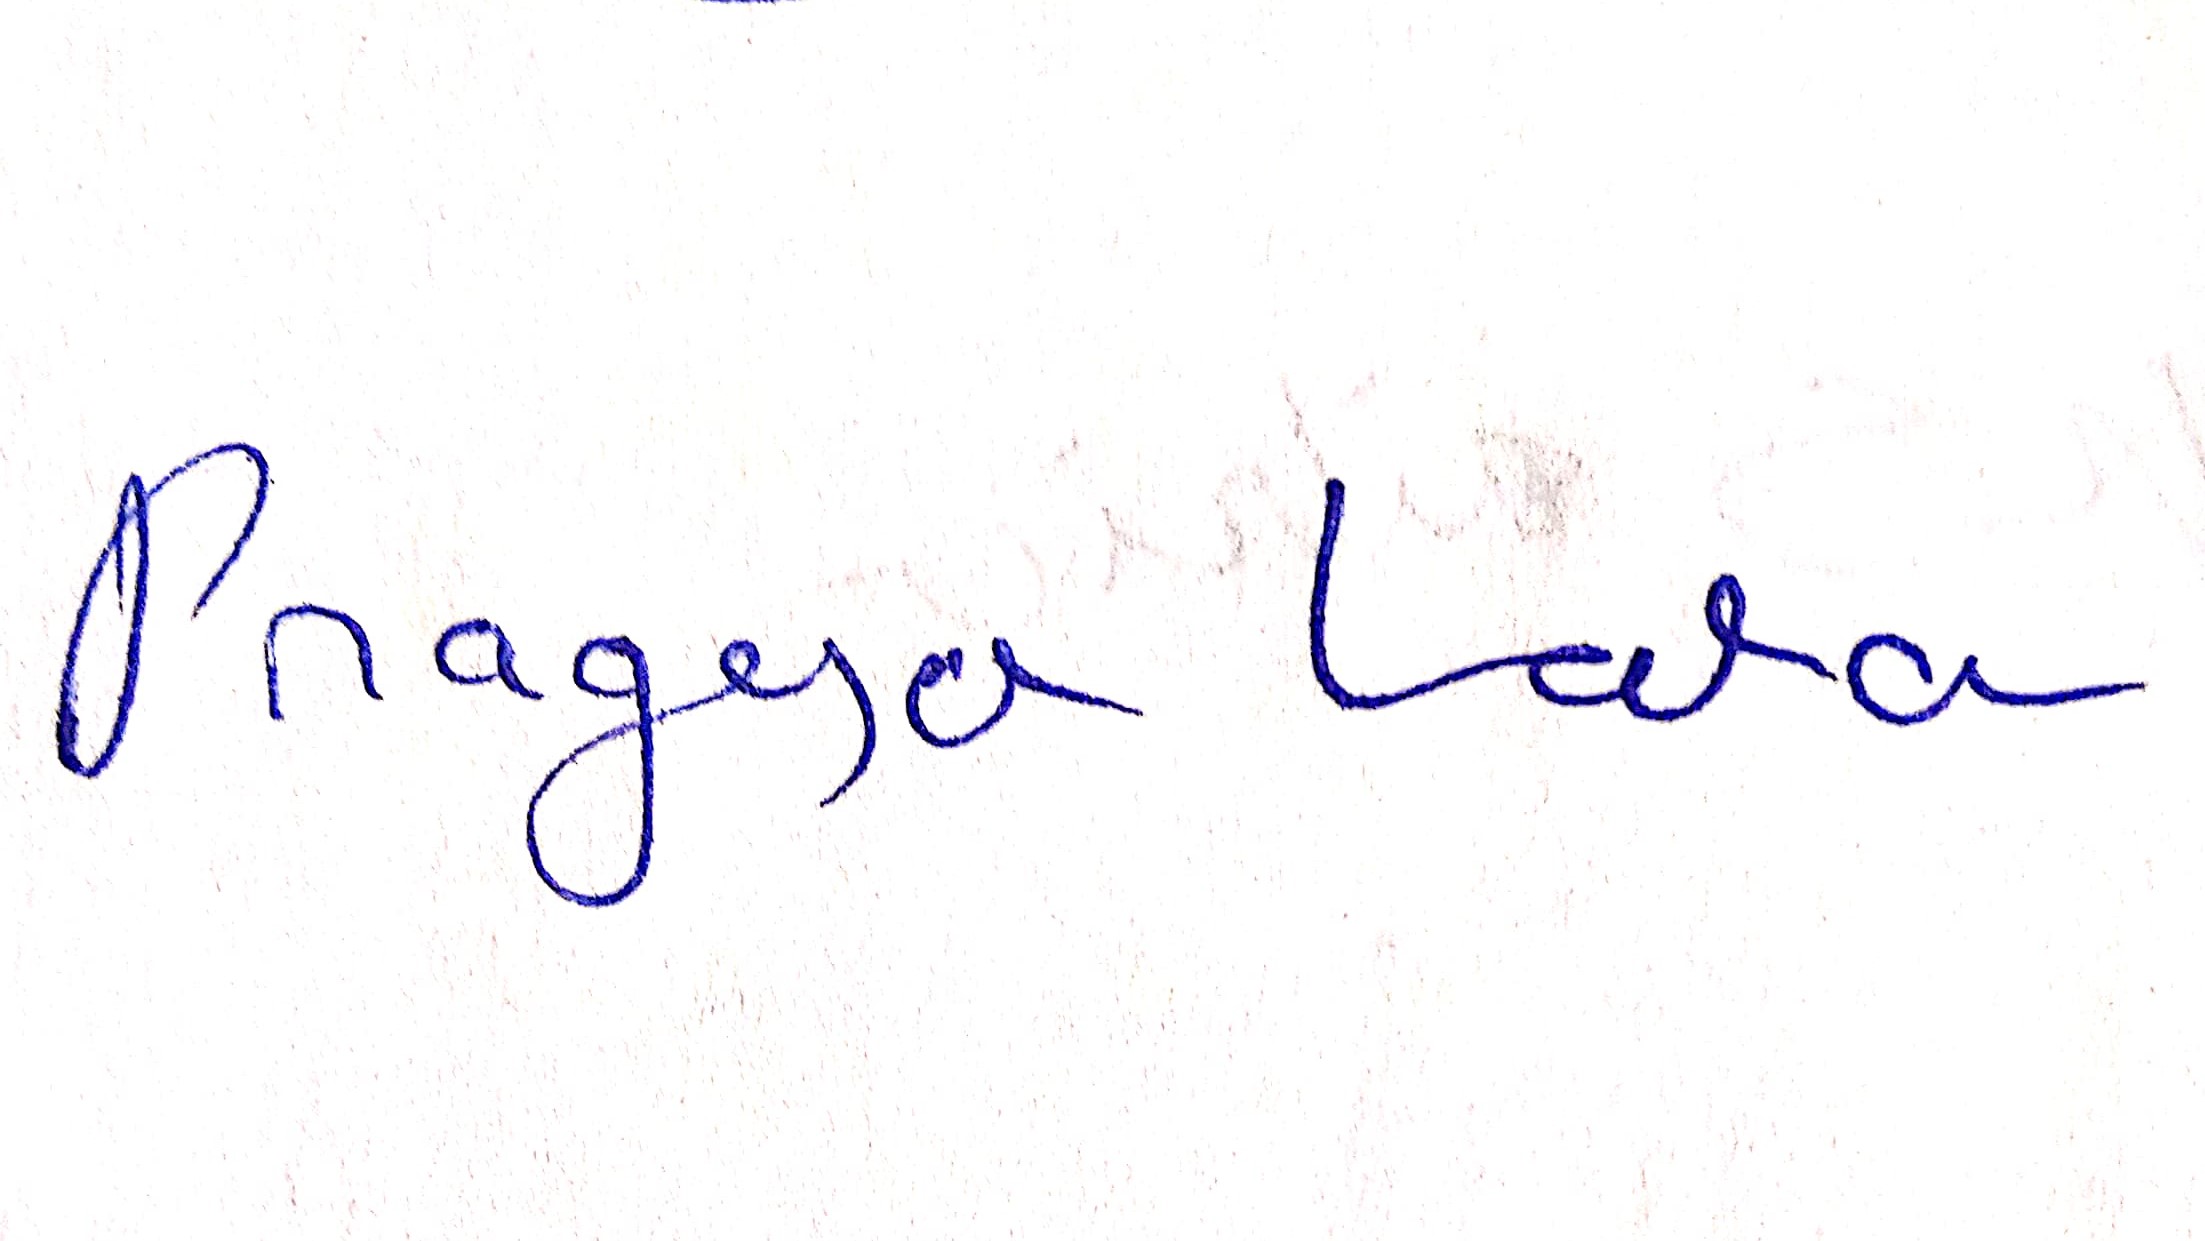 Pragesa Lara